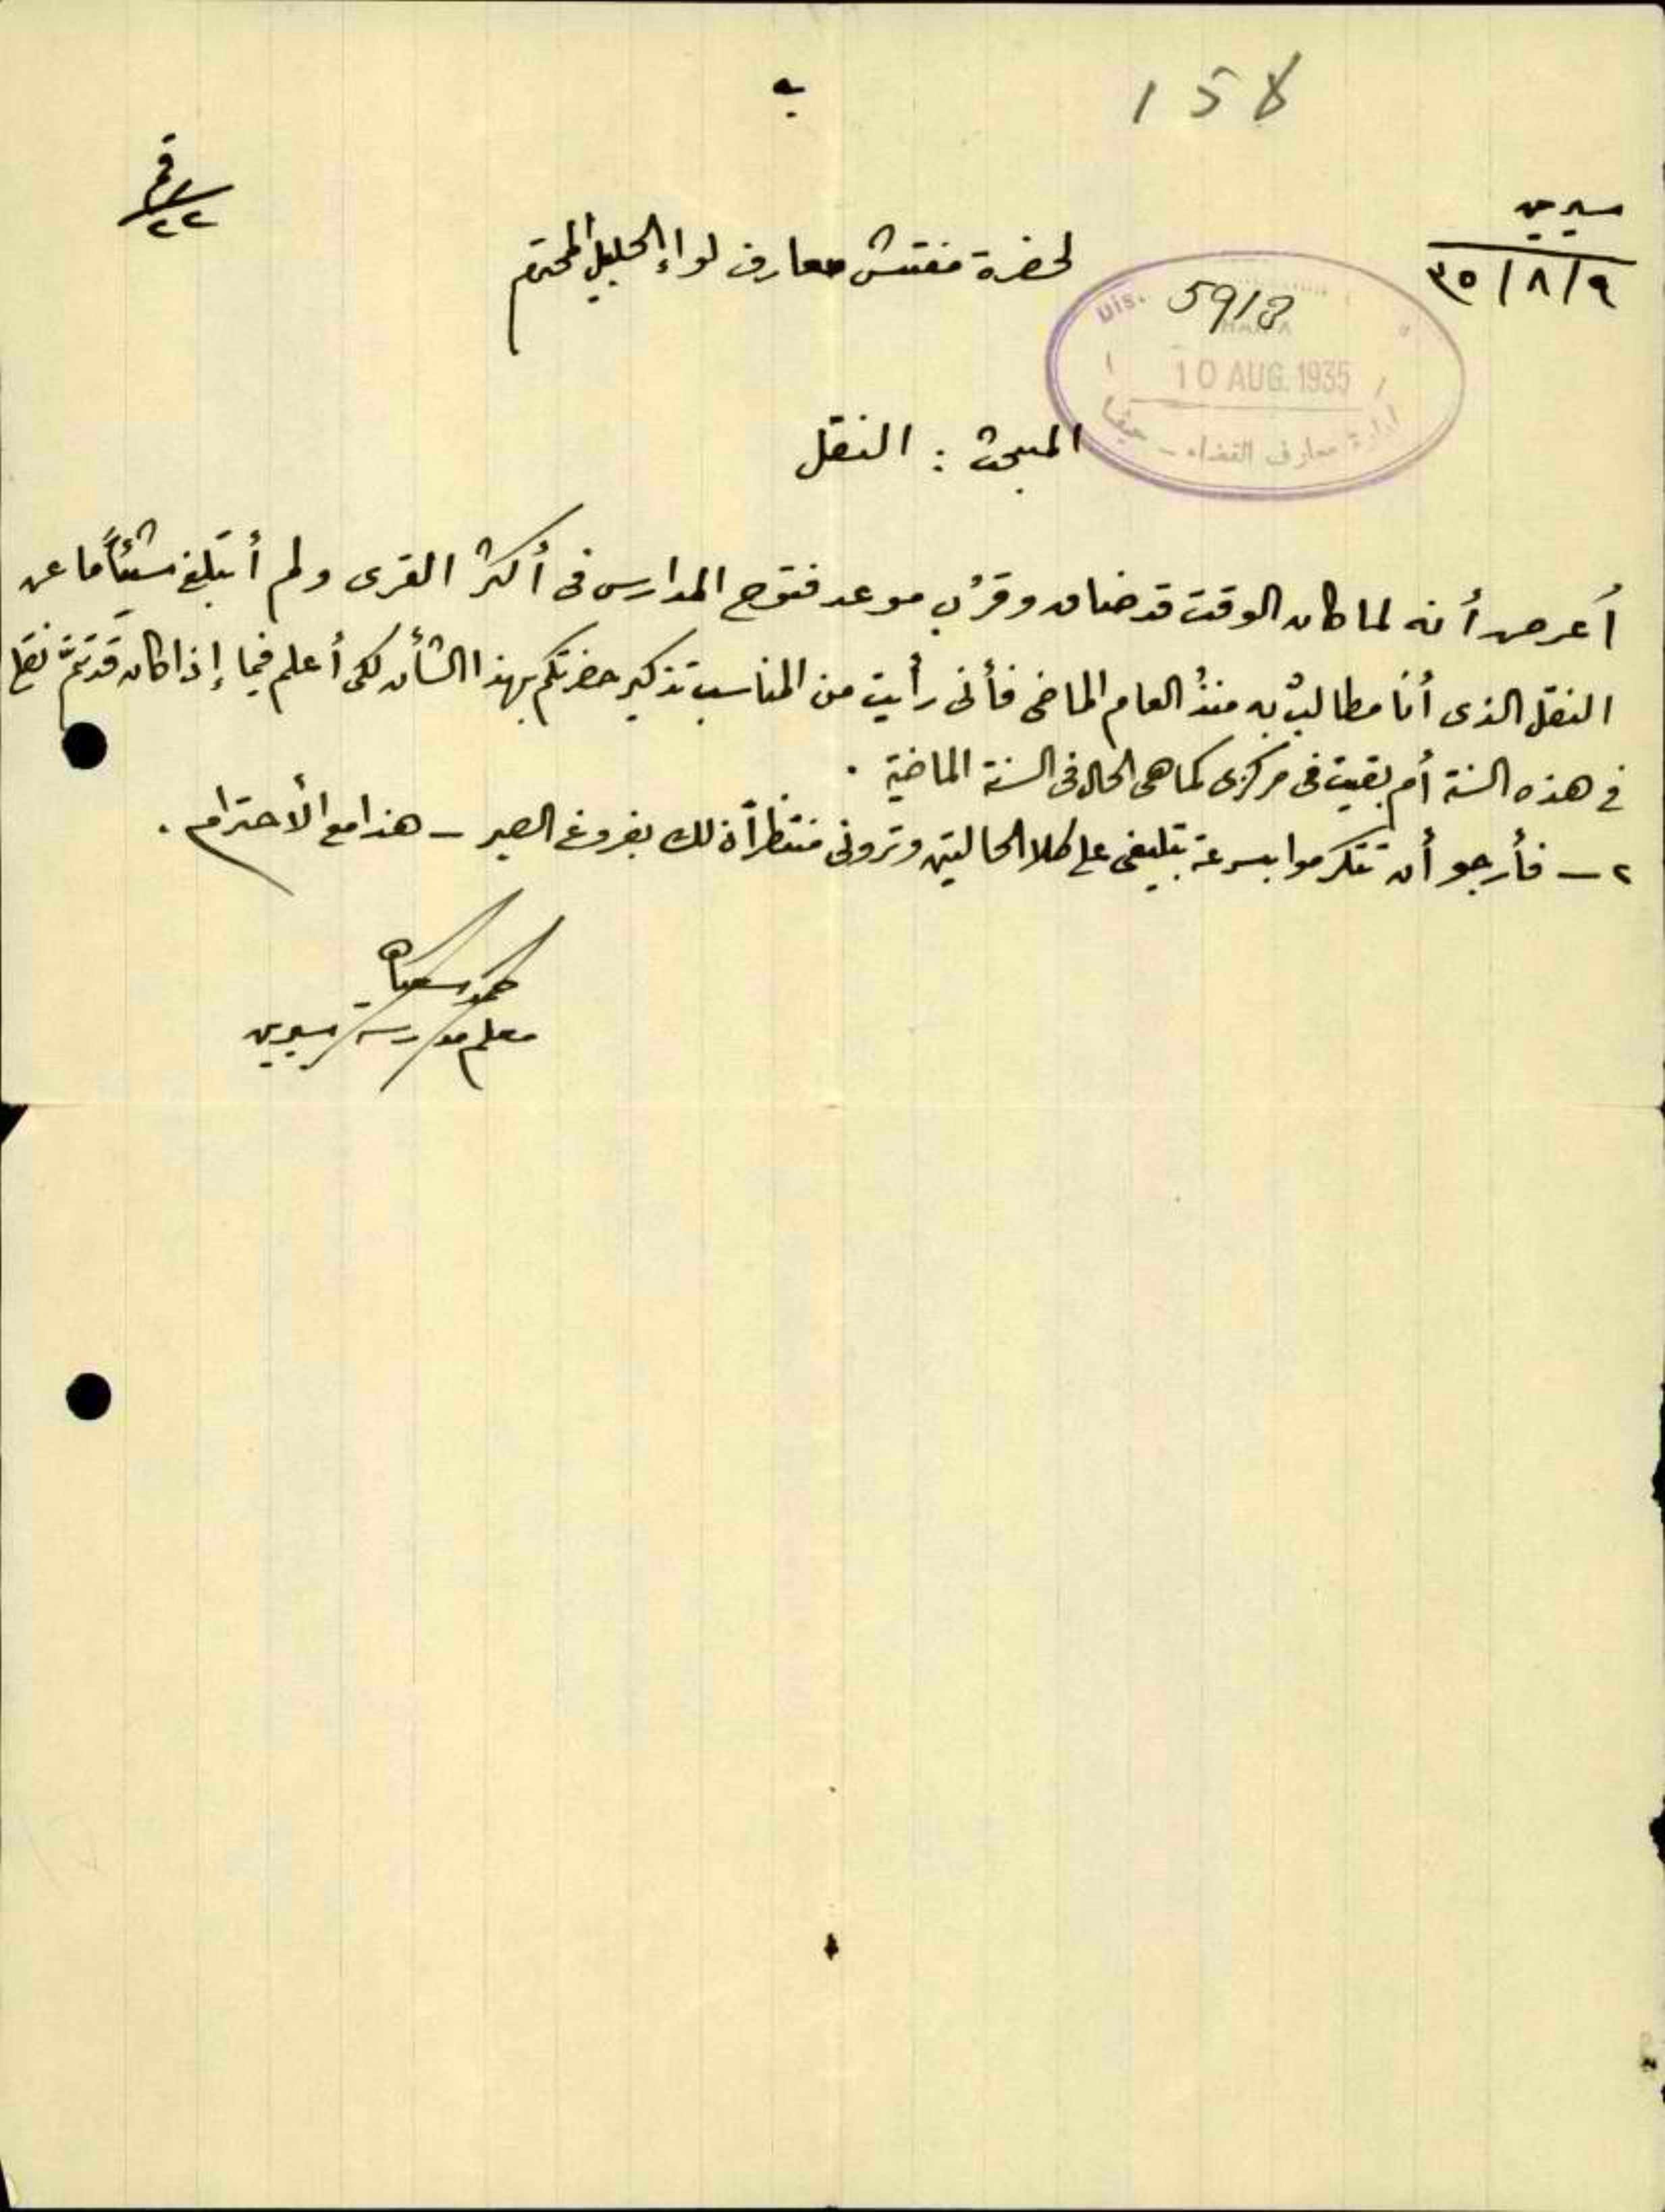 158
سيرين
٩/٨/٣٥
رقم
٢٢
لحضرة مفتش معارف لواء الجليل المحترم
5918
10 AUG. 1935
ادارة معارف القضاء - حيفا
المبحث : النقل
أعرض أنه لما كان الوقت قد ضاق وقرب موعد فتوح المدارس فى أكثر القرى ولم أتبلغ شيئاً ما عن
النقل الذى أنا مطالبٌ به منذُ العام الماضى فأنى رأيت من المناسب تذكير حضرتكم بهذا الشأن لكى أعلم فيما إذا كان قد تمَّ نقلى
فى هذه السنة أم بقيت فى مركزى كما هى الحال فى السنة الماضية .
٢ – فأرجو أن تتكرموا بسرعة تبليغى على كلا الحالتين وترونى منتظراً ذلك بفروغ الصبر – هذا مع الأحترام .
معلم مدرسة سيرين